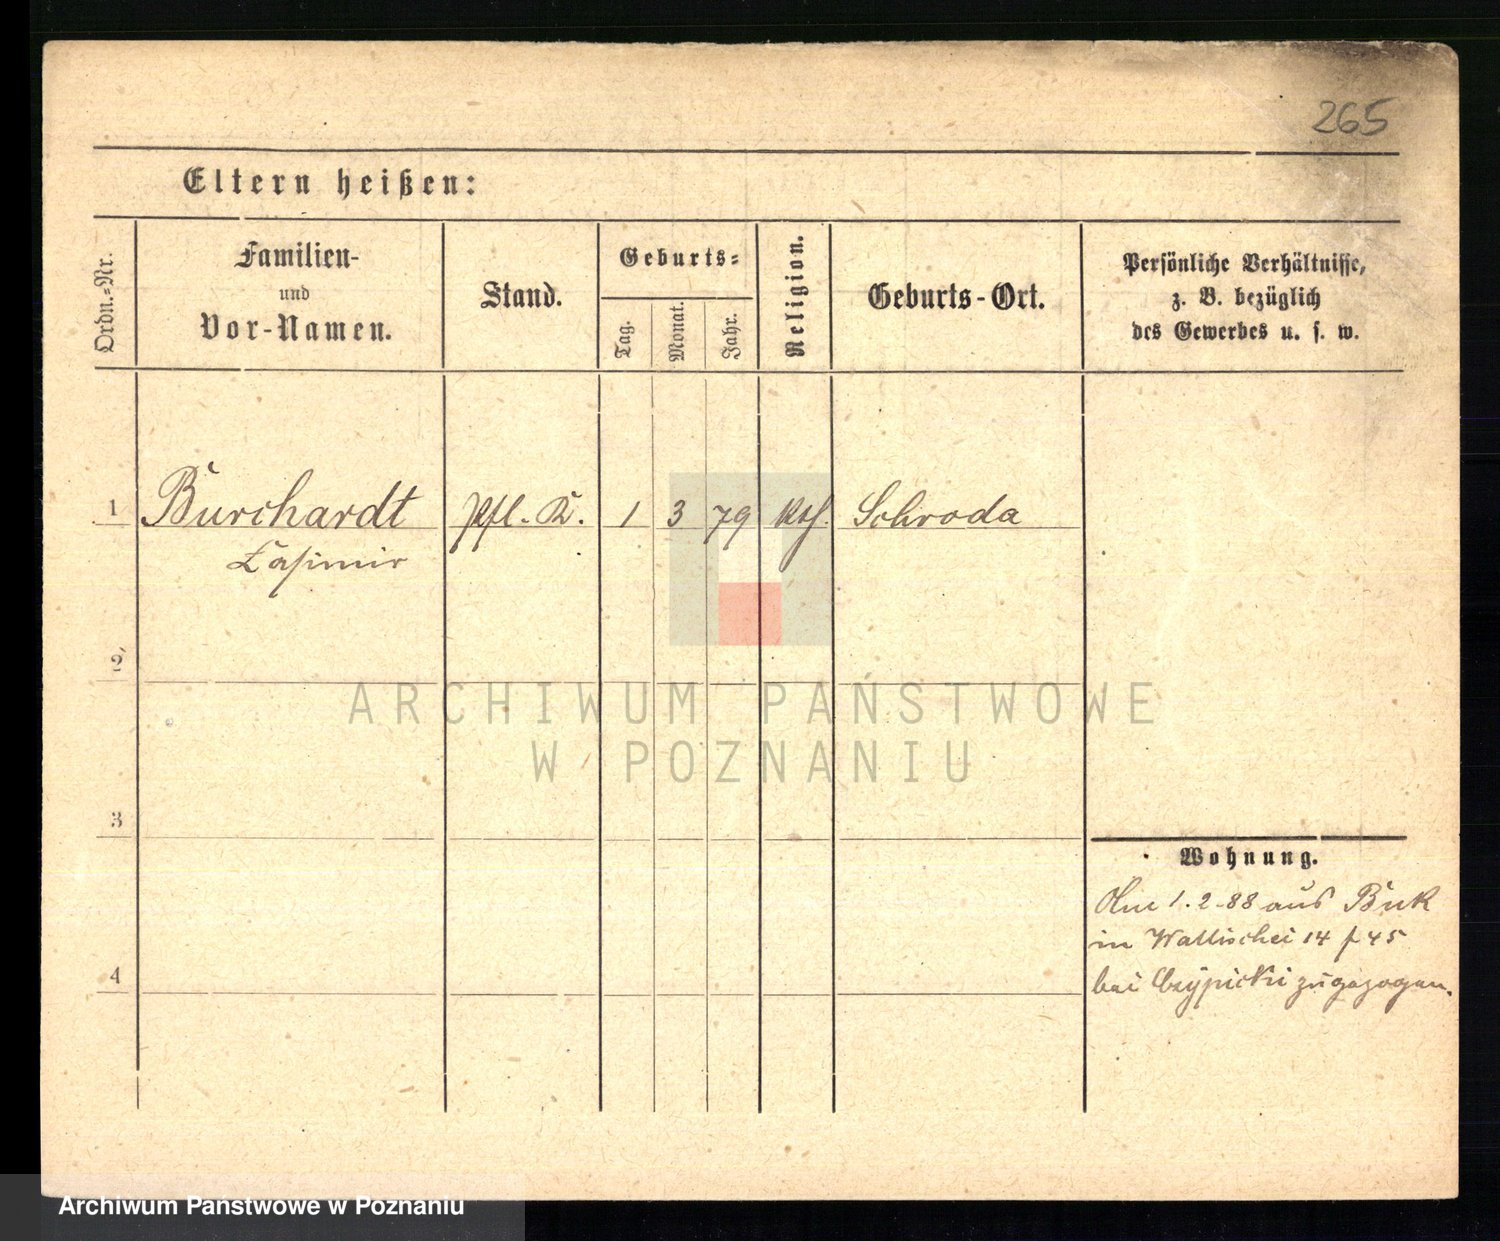 265
Eltern heißen:
Ordn.-Nr.
Familien-
und
Vor-Namen.
Stand.
Geburts-
Tag.
Monat.
Jahr.
Religion.
Geburts-Ort.
Persönliche Verhältnisse,
z. B. bezüglich
des Gewerbes u. s. w.
1 Burchardt Pfl. K. 1 3 79 kth. Schroda
Casimir
2
3
4
Wohnung.
1.2-88 aus Buk
in Wallischei 14 45
bei zugezogen.
ARCHIWUM PAŃSTWOWE
W POZNANIU
Archiwum Państwowe w Poznaniu